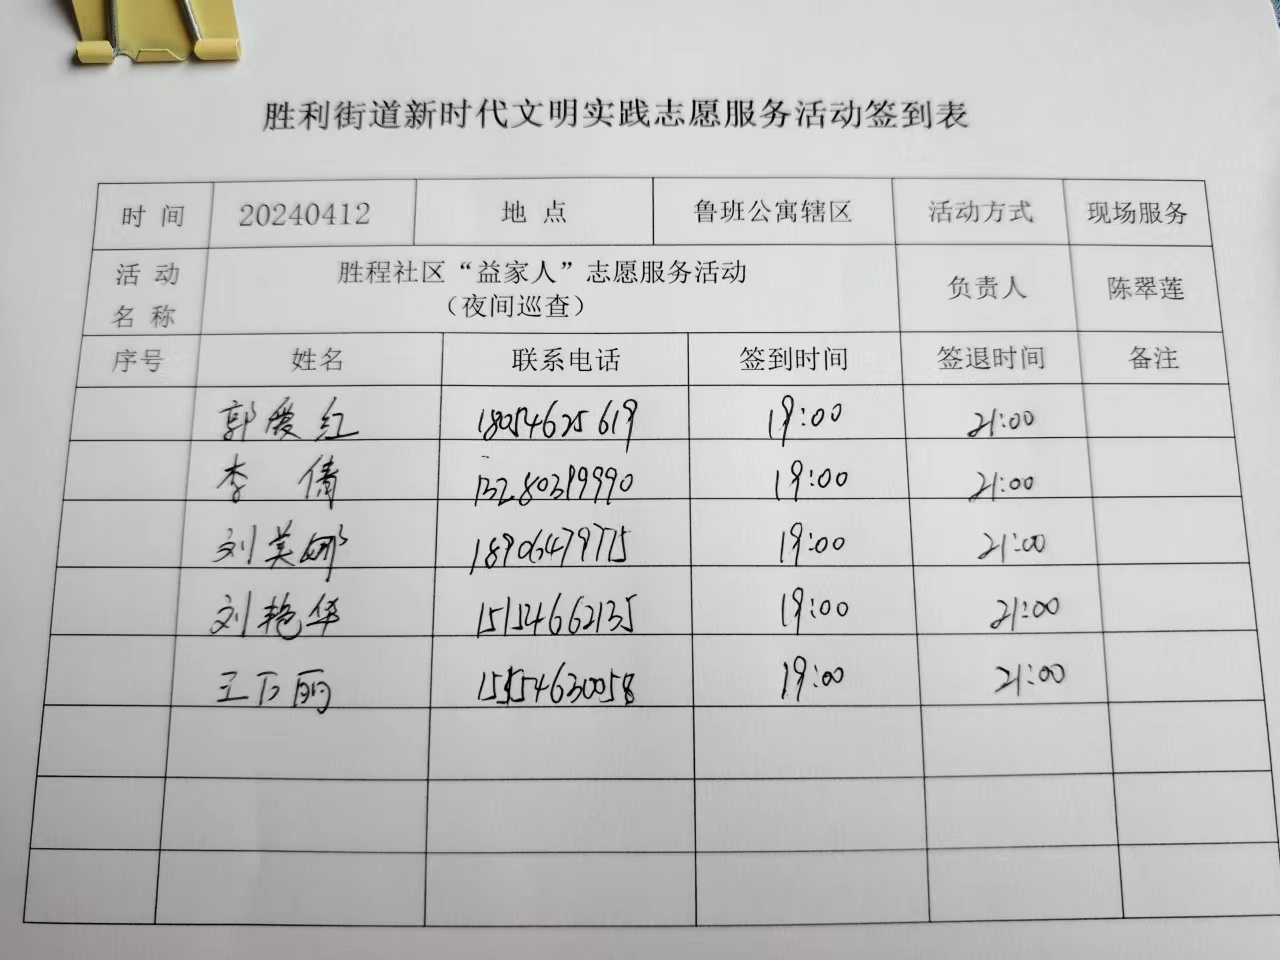 胜利街道新时代文明实践志愿服务活动签到表
时 间 20240412 地 点 鲁班公寓辖区 活动方式 现场服务
活 动 名 称 胜程社区“益家人”志愿服务活动 负责人 陈翠莲
（夜间巡查）
序号 姓名 联系电话 签到时间 签退时间 备注
郭爱红 18054625619 19:00 21:00
李倩 13280319990 19:00 21:00
刘美娜 18906479775 19:00 21:00
刘艳华 15154662135 19:00 21:00
王万丽 15154630058 19:00 21:00